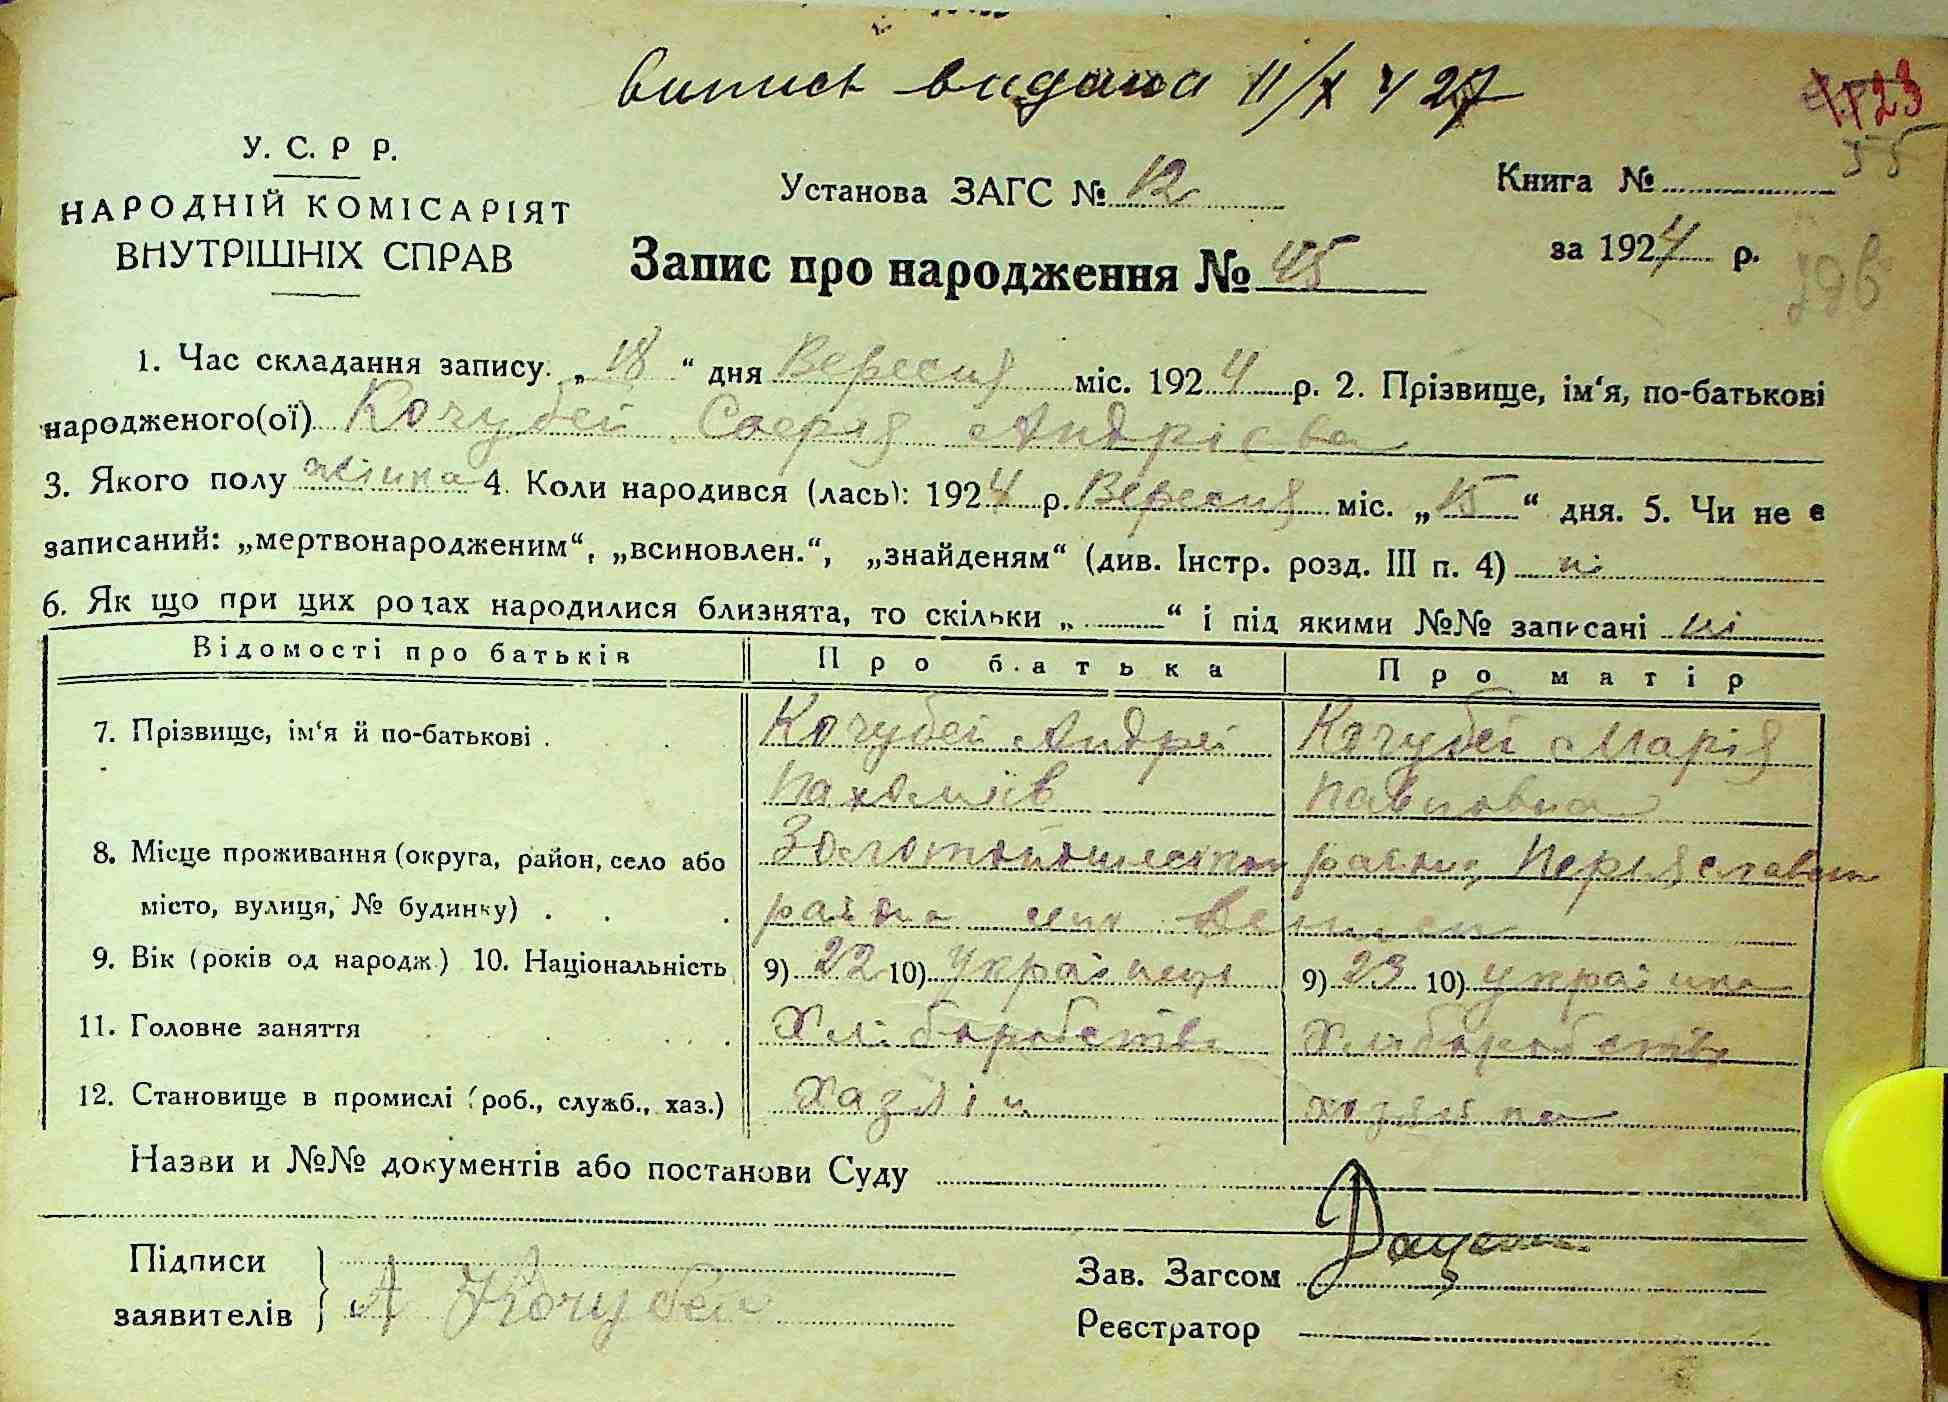 випись видана 11/X 427
У. С. Р Р.
НАРОДНІЙ КОМІСАРІЯТ
ВНУТРІШНІХ СПРАВ
Установа ЗАГС № 12
Книга №
35
Запис про народження № 45
за 1924 р.
1. Час складання запису. „18“ дня Вересня міс. 1924 р. 2. Прізвище, ім‘я, по-батькові
народженого(ої) Кочубей Софія Андрієва
3. Якого полу жінка 4. Коли народився (лась): 1924 р. Вересня міс. „15“ дня. 5. Чи не є
записаний: „мертвонародженим“, „всиновлен.“, „знайденям“ (див. Інстр. розд. III п. 4) ні
6. Як що при цих родах народилися близнята, то скільки „ “ і під якими №№ записані ні
Відомості про батьків Про батька Про матір
7. Прізвище, ім‘я й по-батькові . Кочубей Андрій Кочубей Марія
Пахомів Павловна
8. Місце проживання (округа, район, село або Золотоношеської району Переяславськ
місто, вулиця, № будинку) . района
9. Вік (років од народж.) 10. Національність 9) 22 10) Українець 9) 23 10) україинка
11. Головне заняття Хліборобство Хліборобство
12. Становище в промислі (роб., служб., хаз.) Хазяін хазяйка
Назви и №№ документів або постанови Суду
Підписи
заявителів
А Кочубей
Зав. Загсом
Реєстратор